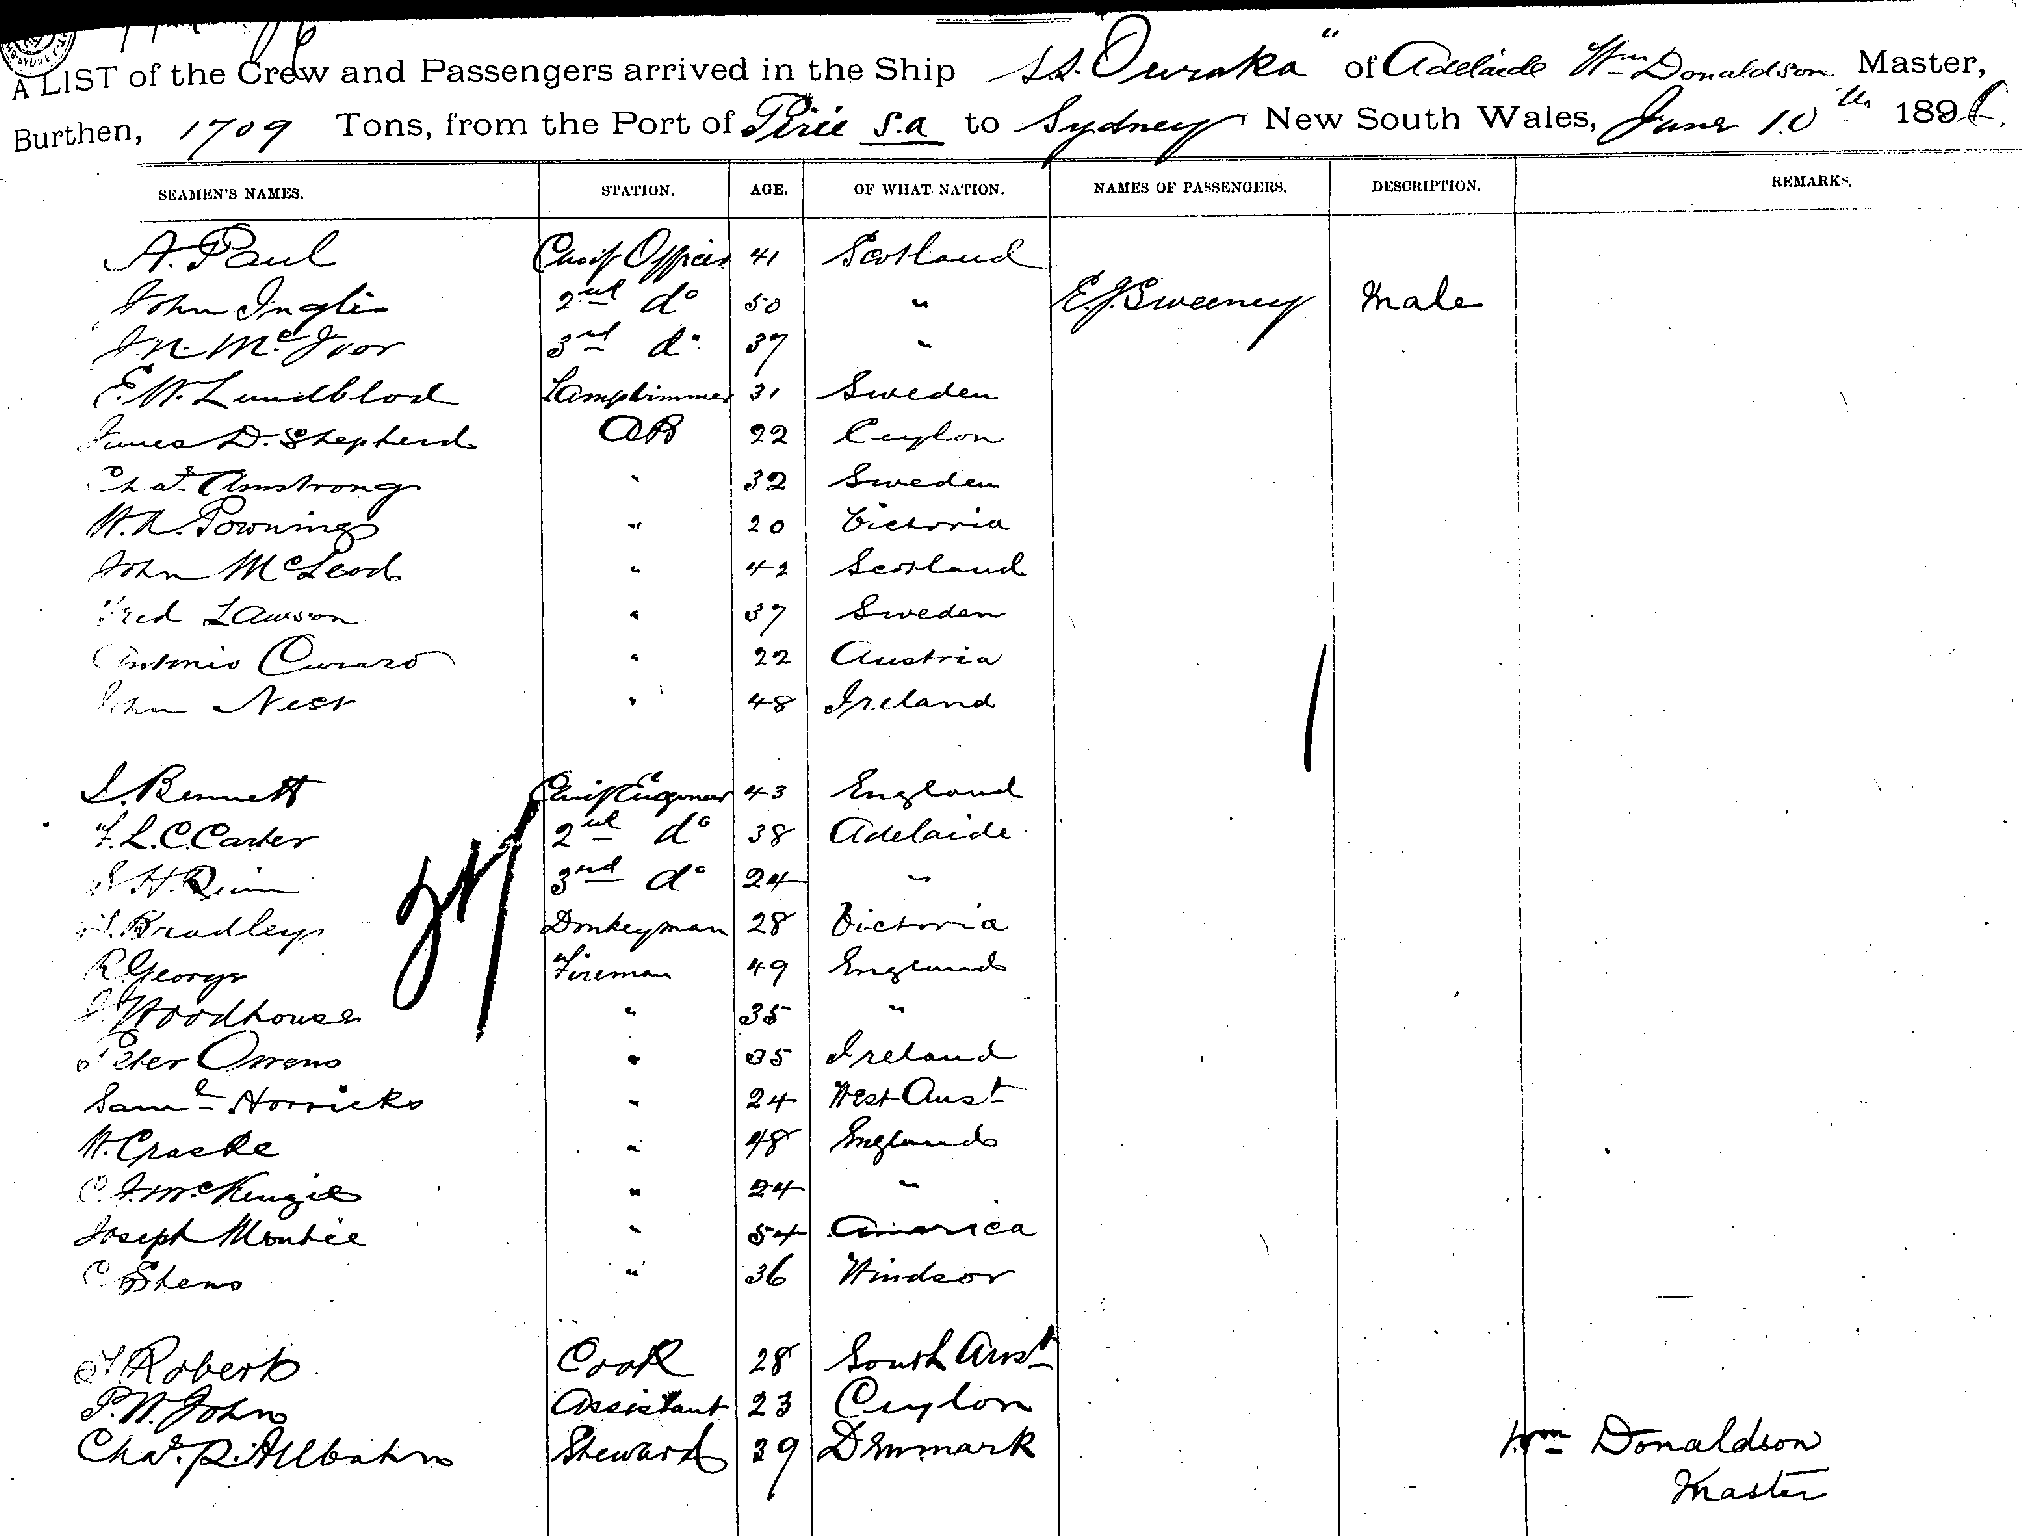 A LIST of the Crew and Passengers arrived in the Ship S.S. "Ouraka" of Adelaide Wm Donaldson Master,
Burthen, 1709 Tons, from the Port of Pirie S.a to Sydney New South Wales, June 10th 1896
SEAMEN'S NAMES. STATION. AGE. OF WHAT NATION. NAMES OF PASSENGERS. DESCRIPTION. REMARKS.
A. Paul Chief Officer 41 Scotland
John Inglis 2nd do 50 " E.J. Sweeney Male
J.N. McIvor 3rd do 37 "
E.W. Lundblod Lamptrimmer 31 Sweden
James D. Shepherd AB 22 Ceylon
Chas. Armstrong " 32 Sweden
W.R. Powning " 20 Victoria
John McLeod " 42 Scotland
Fred Lawson " 37 Sweden
Antonio " 22 Austria
John " 48 Ireland
Bennett Chief Engineer 43 England
F.L.C. Carter 2nd do 38 Adelaide
H. Quin 3rd do 24 "
Bradley Donkeyman 28 Victoria
R. George Fireman 49 England
J. Woodhouse " 35 "
Peter Owens " 35 Ireland
Saml Horricks " 24 West Aust
W. Craske " 48 England
C.J. McKenzie " 24 "
Joseph " 54 America
C. " 36 Windsor
Roberts Cook 28 South Aust
P.W. John Assistant 23 Ceylon
Chas. P. Ahlbahn Steward 39 Denmark
Wm Donaldson
Master